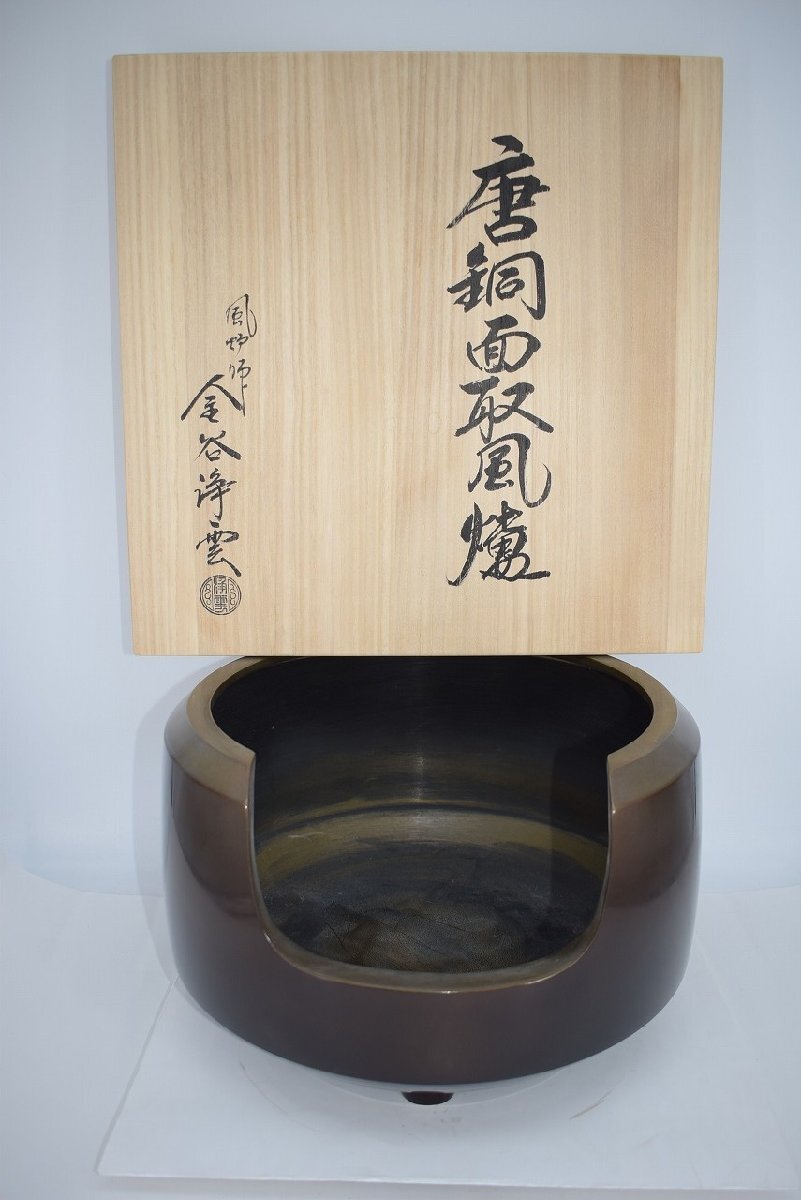 唐銅面取風爐
風炉師 金谷浄雲
浄雲